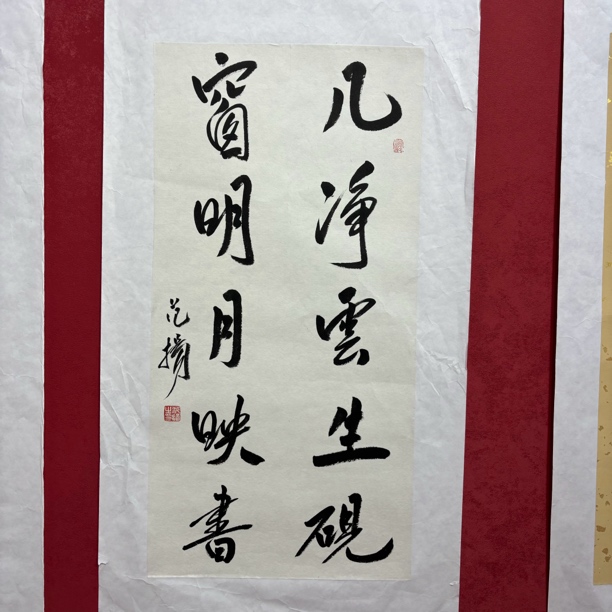 几净雲生硯
窗明月映書